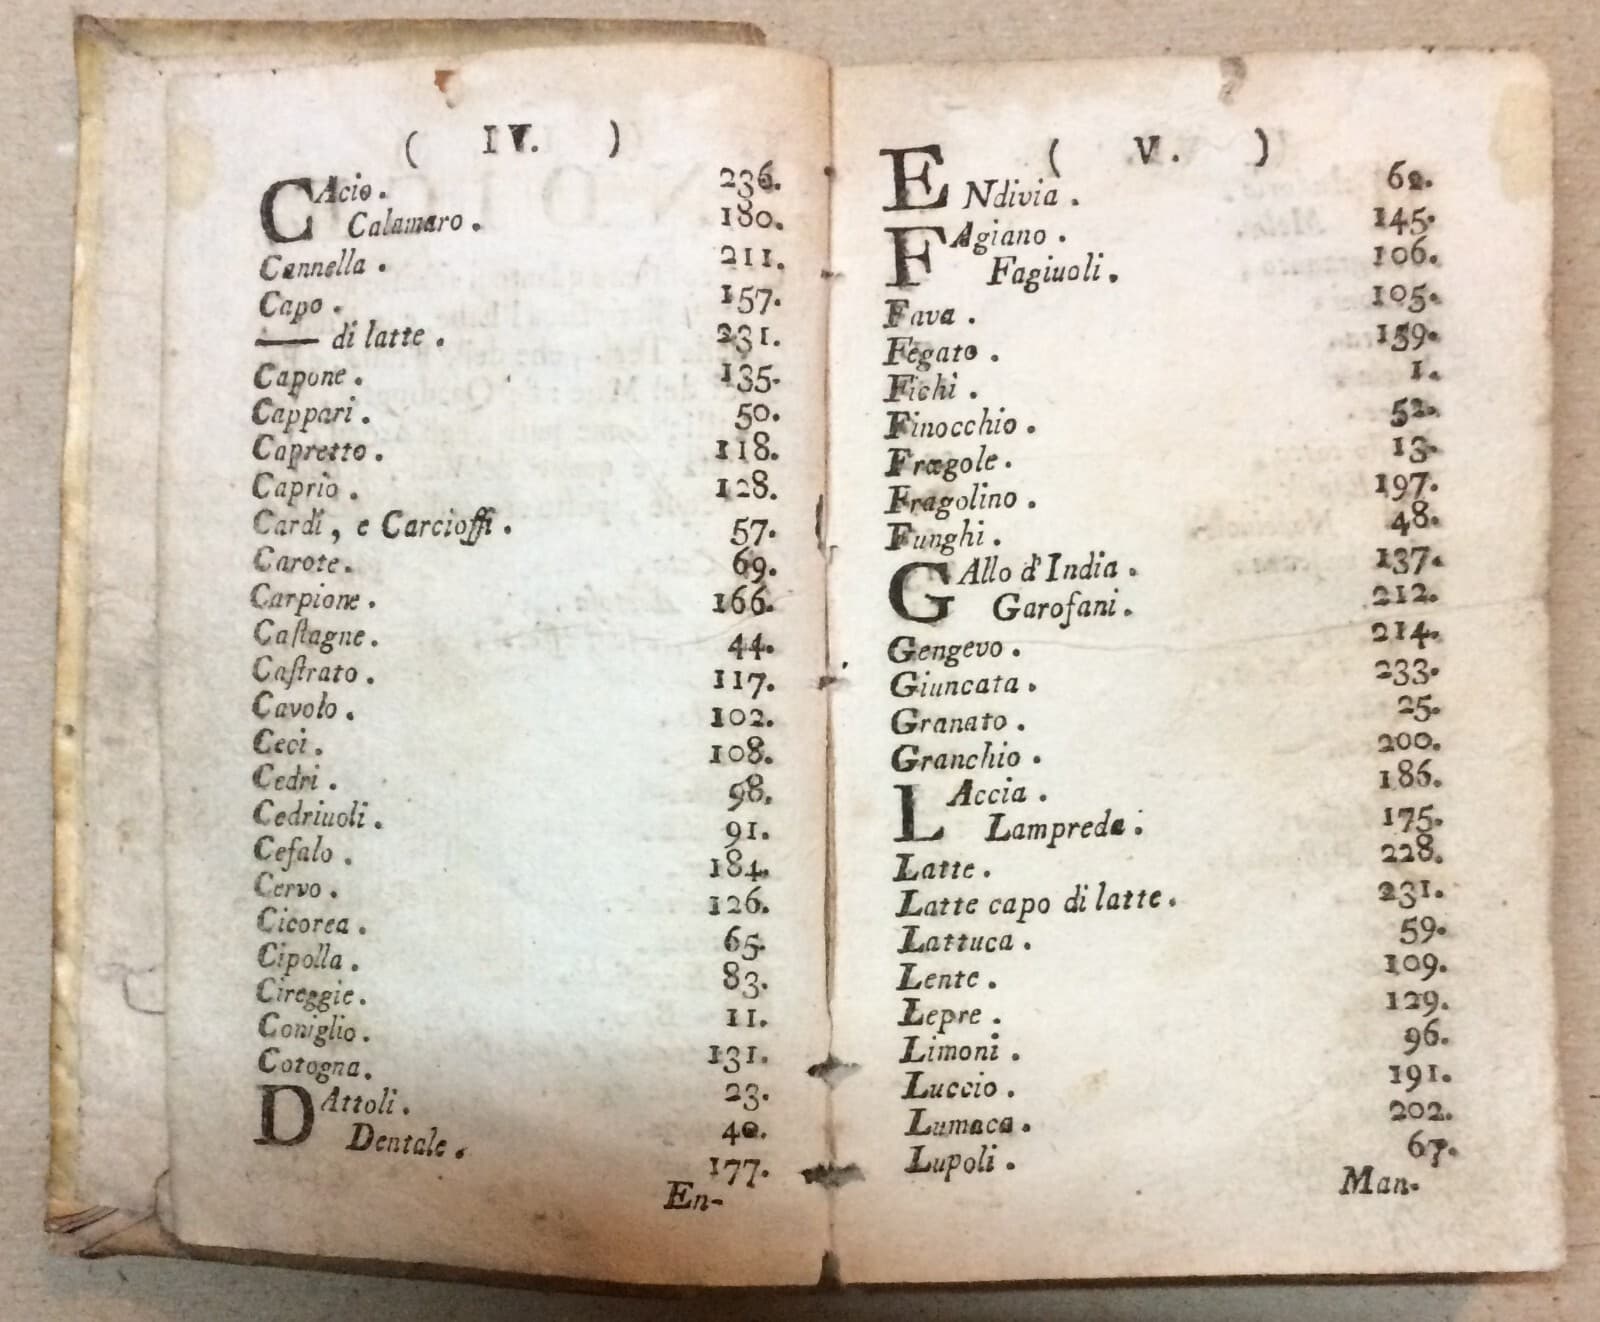 ( IV. )
CAcio. 236.
Calamaro. 180.
Cannella. 211.
Capo. 157.
—— di latte. 231.
Capone. 135.
Cappari. 50.
Capretto. 118.
Caprio. 128.
Cardi, e Carcioffi. 57.
Carote. 69.
Carpione. 166.
Caſtagne. 44.
Caſtrato. 117.
Cavolo. 102.
Ceci. 108.
Cedri. 98.
Cedriuoli. 91.
Cefalo. 184.
Cervo. 126.
Cicorea. 65.
Cipolla. 83.
Cireggie. 11.
Coniglio. 131.
Cotogna. 23.
DAttoli. 40.
Dentale. 177.
En-
( V. )
ENdivia. 62.
FAgiano. 145.
Fagiuoli. 106.
Fava. 105.
Fegato. 159.
Fichi. 1.
Finocchio. 52.
Fragole. 13.
Fragolino. 197.
Funghi. 48.
GAllo d'India. 137.
Garofani. 212.
Gengevo. 214.
Giuncata. 233.
Granato. 25.
Granchio. 200.
LAccia. 186.
Lampreda. 175.
Latte. 228.
Latte capo di latte. 231.
Lattuca. 59.
Lente. 109.
Lepre. 129.
Limoni. 96.
Luccio. 191.
Lumaca. 202.
Lupoli. 67.
Man-